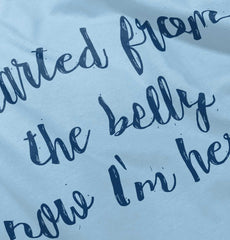 arted from
the belly
now I'm he